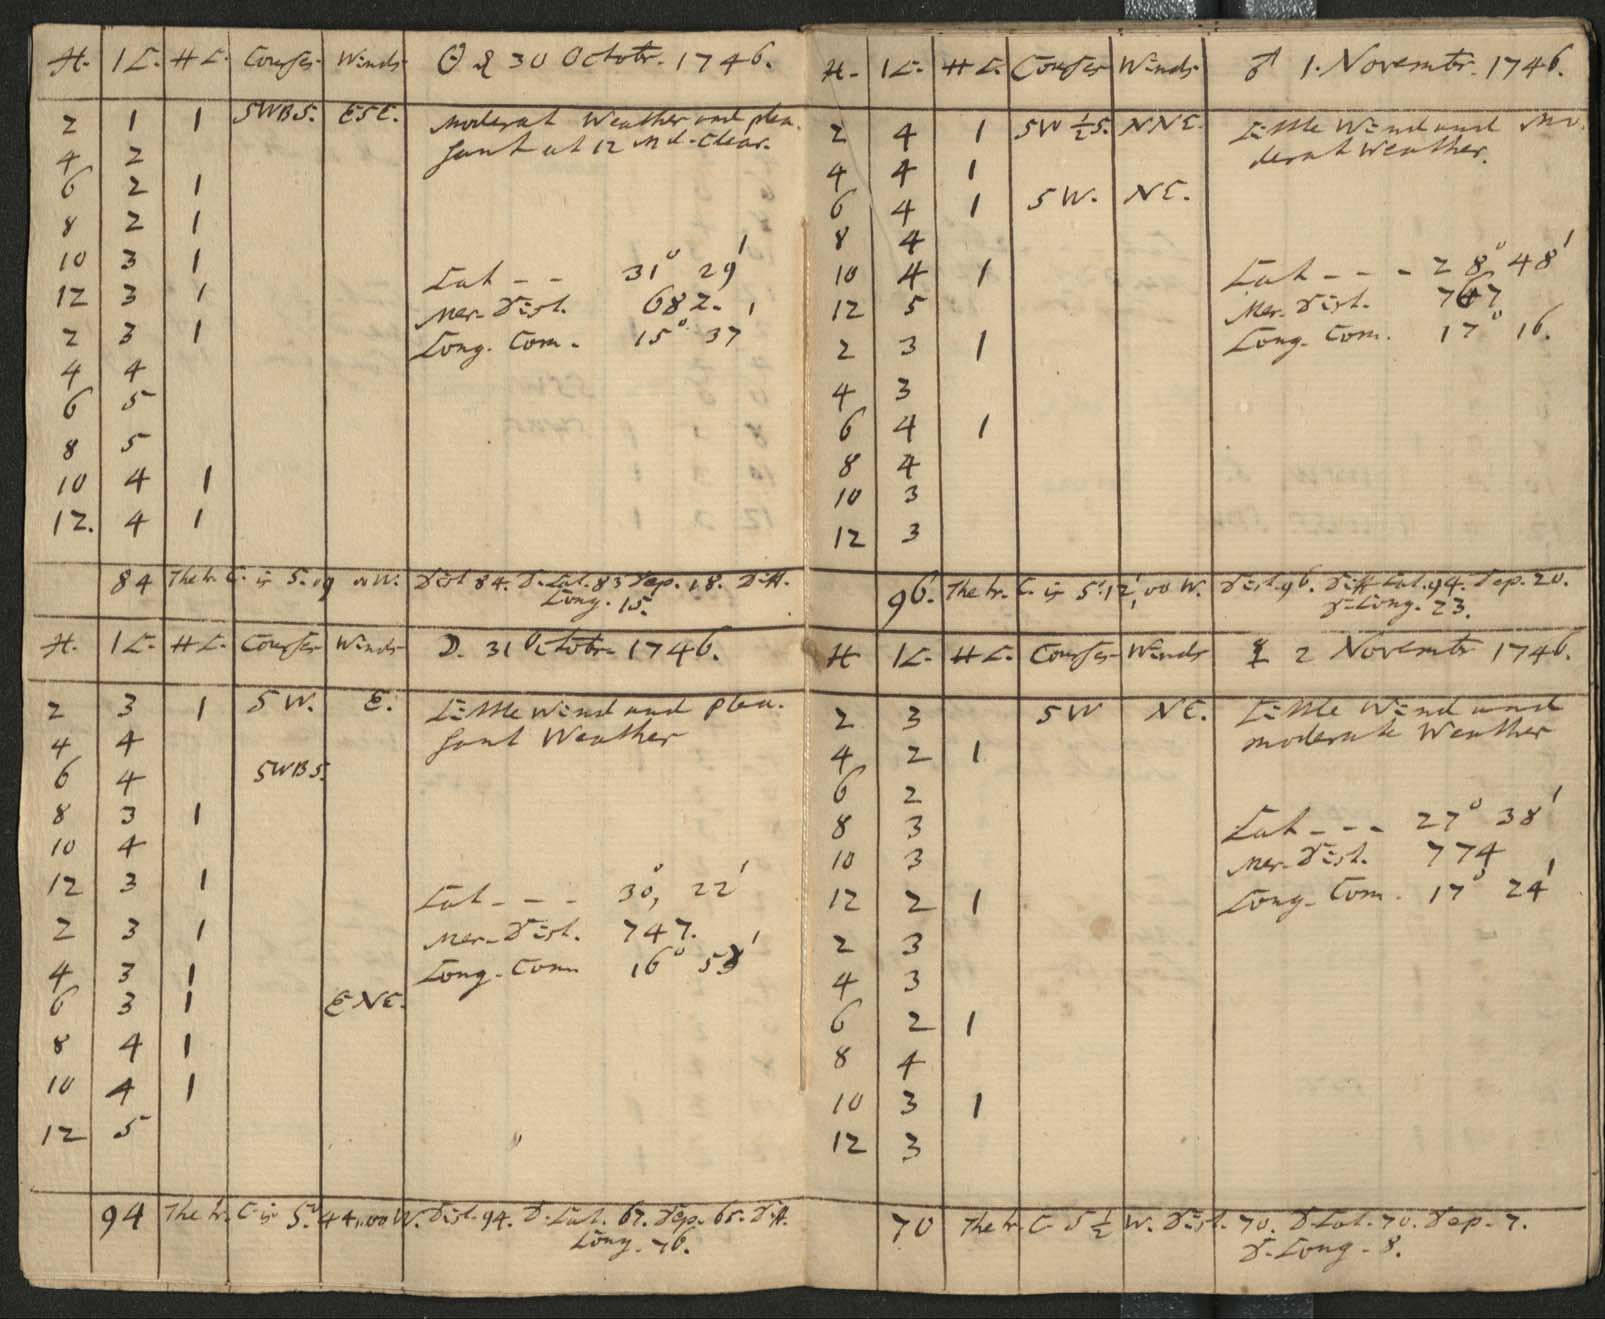 H. 1K. HK. Courses Winds ☉ d 30 Octobr. 1746.
2 1 1 SWBS. ESE. Moderat Weather and plea-
4 2 sant at 12 Md. Clear.
6 2 1
8 2 1
10 3 1 Lat - - 31° 29'
12 3 1 Mer. Dist. 682.
2 3 1 Long. Com. 15° 37'
4 4
6 5
8 5
10 4 1
12. 4 1
84 The tr. C. is S. 09 00 W. Dist 84. D. Lat. 83 Dep. 18. Diff.
Long. 15.
H. 1K. HK. Courses Winds D. 31 Octobr. 1746.
2 3 1 SW. E. Little Wind and plea-
4 4 sant Weather
6 4 SWBS.
8 3 1
10 4
12 3 1 Lat - - - 30°, 22'
2 3 1 Mer. Dist. 747.
4 3 1 Long. Com. 16° 53'
6 3 1 ENE.
8 4 1
10 4 1
12 5
94 The tr. C. is S. 44,, 00 W. Dist. 94. D. Lat. 67. Dep. 65. Diff.
Long. 76.
H. 1K. HK. Courses Winds ♂ 1. Novembr. 1746.
2 4 1 SW ½ S. NNE. Little Wind and Mo-
4 4 1 derat Weather.
6 4 1 SW. NE.
8 4
10 4 1 Lat - - - 28° 48'
12 5 Mer. Dist. 767
2 3 1 Long. Com. 17° 16.
4 3
6 4 1
8 4
10 3
12 3
96. The tr. C. is S. 12,, 00 W. Dist. 96. Diff Lat. 94. Dep. 20.
D. Long. 23.
H 1K. HK. Courses Winds ☿ 2 Novembr 1746.
2 3 SW NE. Little Wind and
4 2 1 moderate Weather
6 2
8 3 Lat - - - 27° 38'
10 3 Mer. Dist. 774
12 2 1 Long. Com. 17° 24'
2 3
4 3
6 2 1
8 4
10 3 1
12 3
70 The tr. C. S ½ W. Dist. 70. D. Lat. 70. Dep. 7.
D. Long. 8.